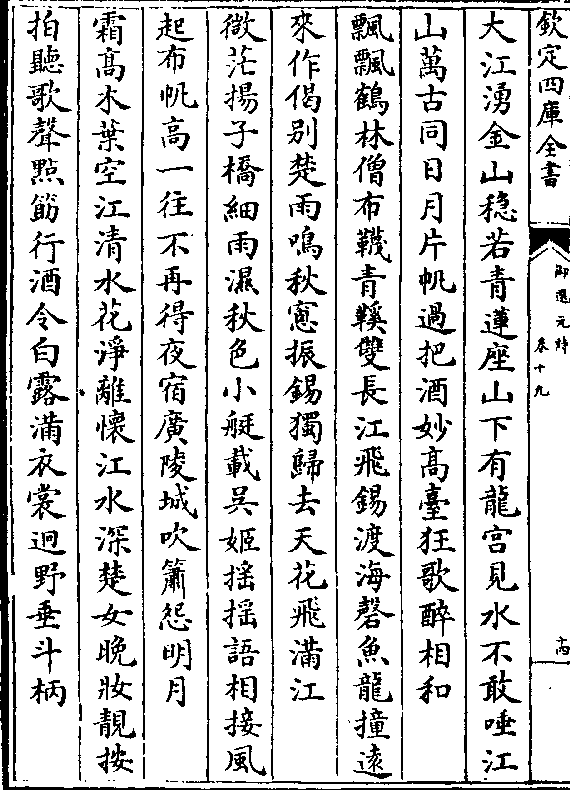 欽定四庫全書
御選元詩
卷十九
十四
大江湧金山穏若青蓮座山下有龍宫見水不敢唾江
山萬古同日月片帆過把酒妙髙臺狂歌醉相和
飄飄鶴林僧布韈青鞵雙長江飛錫渡海磬魚龍撞逺
來作偈别楚雨鳴秋窻振錫獨歸去天花飛滿江
微茫揚子橋細雨濕秋色小艇載吳姬揺揺語相接風
起布帆高一往不再得夜宿廣陵城吹簫怨明月
霜髙木葉空江清水花淨離懷江水深楚女晩妝靚按
拍聽歌聲點籌行酒令白露滿衣裳迥野垂斗柄